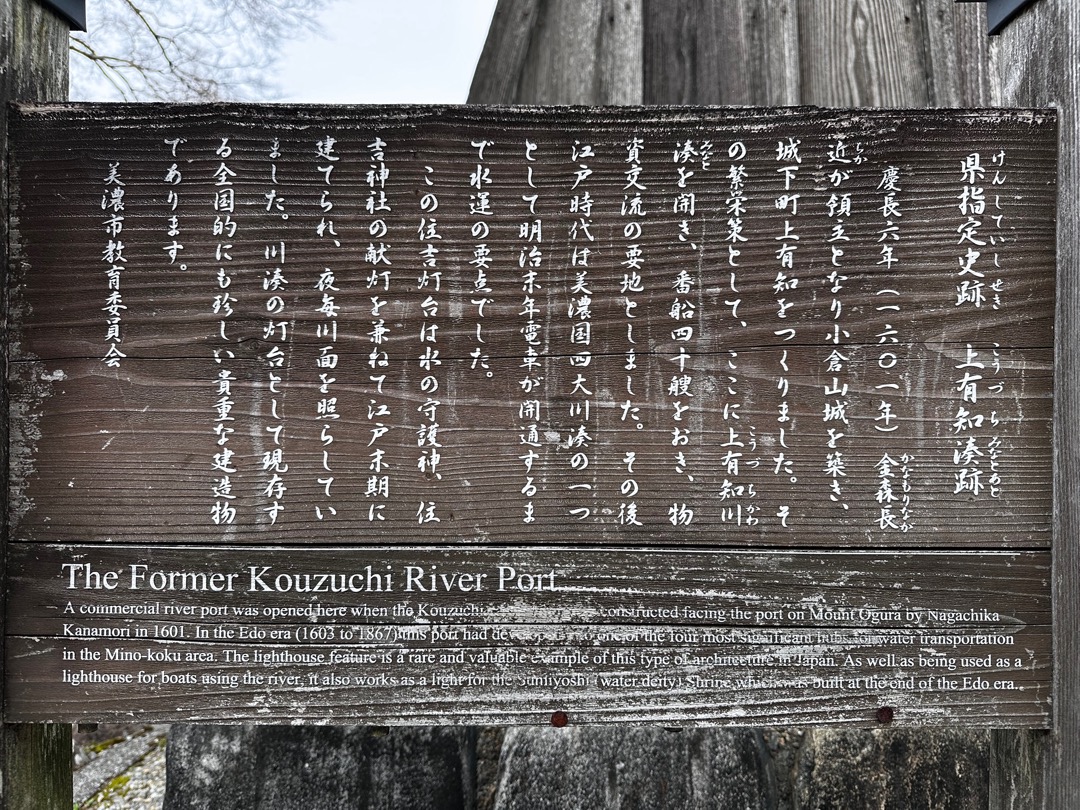 けんしていしせき こうづちみなとあと
県指定史跡 上有知湊跡
かなもりなが
慶長六年(一六〇一年) 金森長
ちか
近が領主となり小倉山城を築き、
城下町上有知をつくりました。そ
こうづちかわ
の繁栄策として、ここに上有知川
みなと
湊を開き、番船四十艘をおき、物
資交流の要地としました。その後
江戸時代は美濃国四大川湊の一つ
として明治末年電車が開通するま
で水運の要点でした。
この住吉灯台は水の守護神、住
吉神社の献灯を兼ねて江戸末期に
建てられ、夜毎川面を照らしてい
ました。川湊の灯台として現存す
る全国的にも珍しい貴重な建造物
であります。
美濃市教育委員会
The Former Kouzuchi River Port
A commercial river port was opened here when the Kouzuchi constructed facing the port on Mount Ogura by Nagachika
Kanamori in 1601. In the Edo era (1603 to 1867) this port had developed into one of the four most significant hubs for water transportation
in the Mino-koku area. The lighthouse feature is a rare and valuable example of this type of architecture in Japan. As well as being used as a
lighthouse for boats using the river, it also works as a light for the Sumiyoshi (water deity) Shrine which was built at the end of the Edo era.